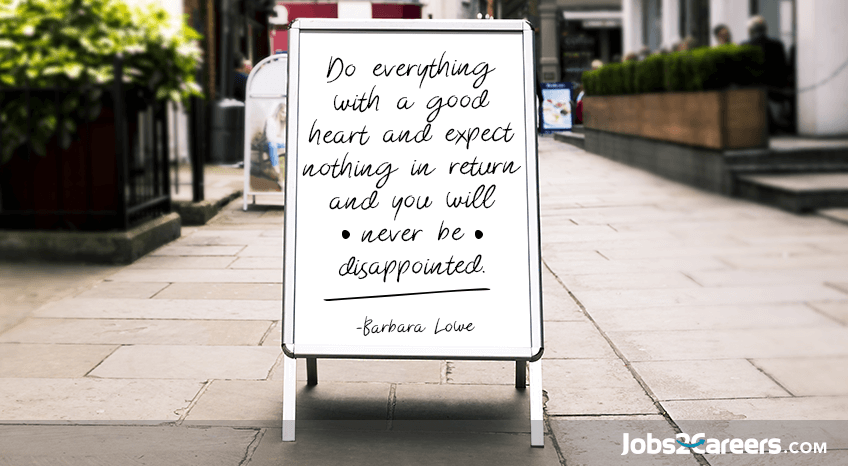 Do everything
with a good
heart and expect
nothing in return
and you will
• never be •
disappointed.
-Barbara Lowe
Jobs2Careers.com